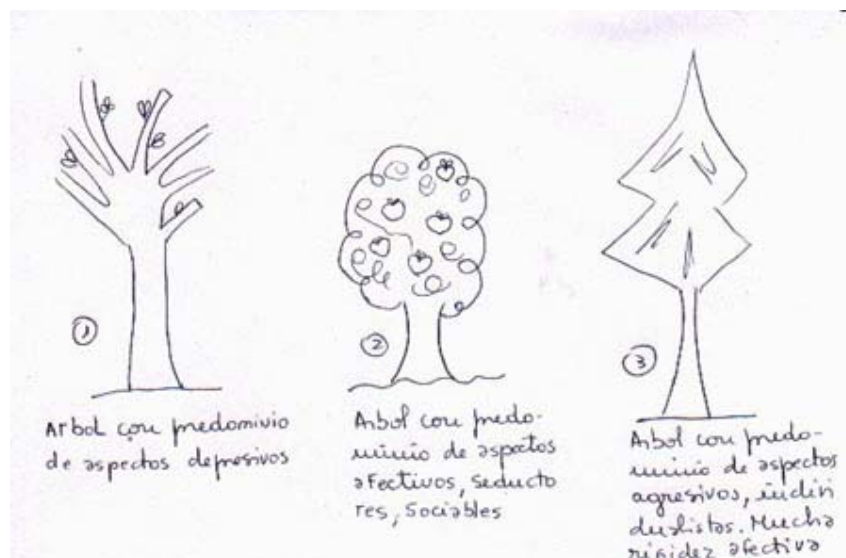 1
Arbol con predominio
de aspectos depresivos
2
Arbol con predo-
minio de aspectos
afectivos, seducto
res, Sociables
3
Arbol con predo-
minio de aspectos
agresivos, indivi
dualistas. Mucha
rigidez afectiva